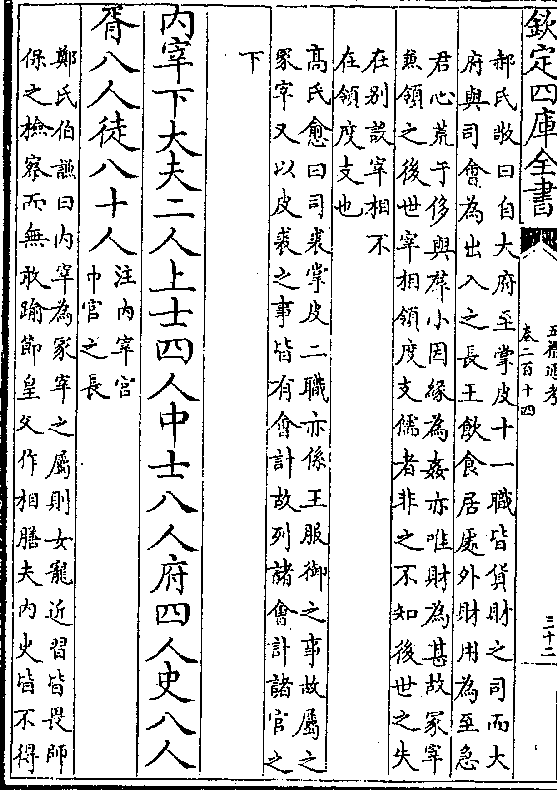 欽定四庫全書
五禮通考
卷二百十四
三十二
郝氏敬曰自大府至掌皮十一職皆貨財之司而大
府與司會為出入之長王飲食居處外財用為至急
君心荒于侈與羣小因緣為姦亦唯財為甚故冢宰
兼領之後世宰相領度支儒者非之不知後世之失
在别設宰相不
在領度支也
髙氏愈曰司裘掌皮二職亦係王服御之事故屬之
冢宰又以皮裘之事皆有㑹計故列諸㑹計諸官之
下
内宰下大夫二人上士四人中士八人府四人史八人
胥八人徒八十人
注内宰宮
中官之長
鄭氏伯謙曰内宰為冢宰之屬則女寵近習皆畏師
保之檢察而無敢踰節皇父作相膳夫内史皆不得